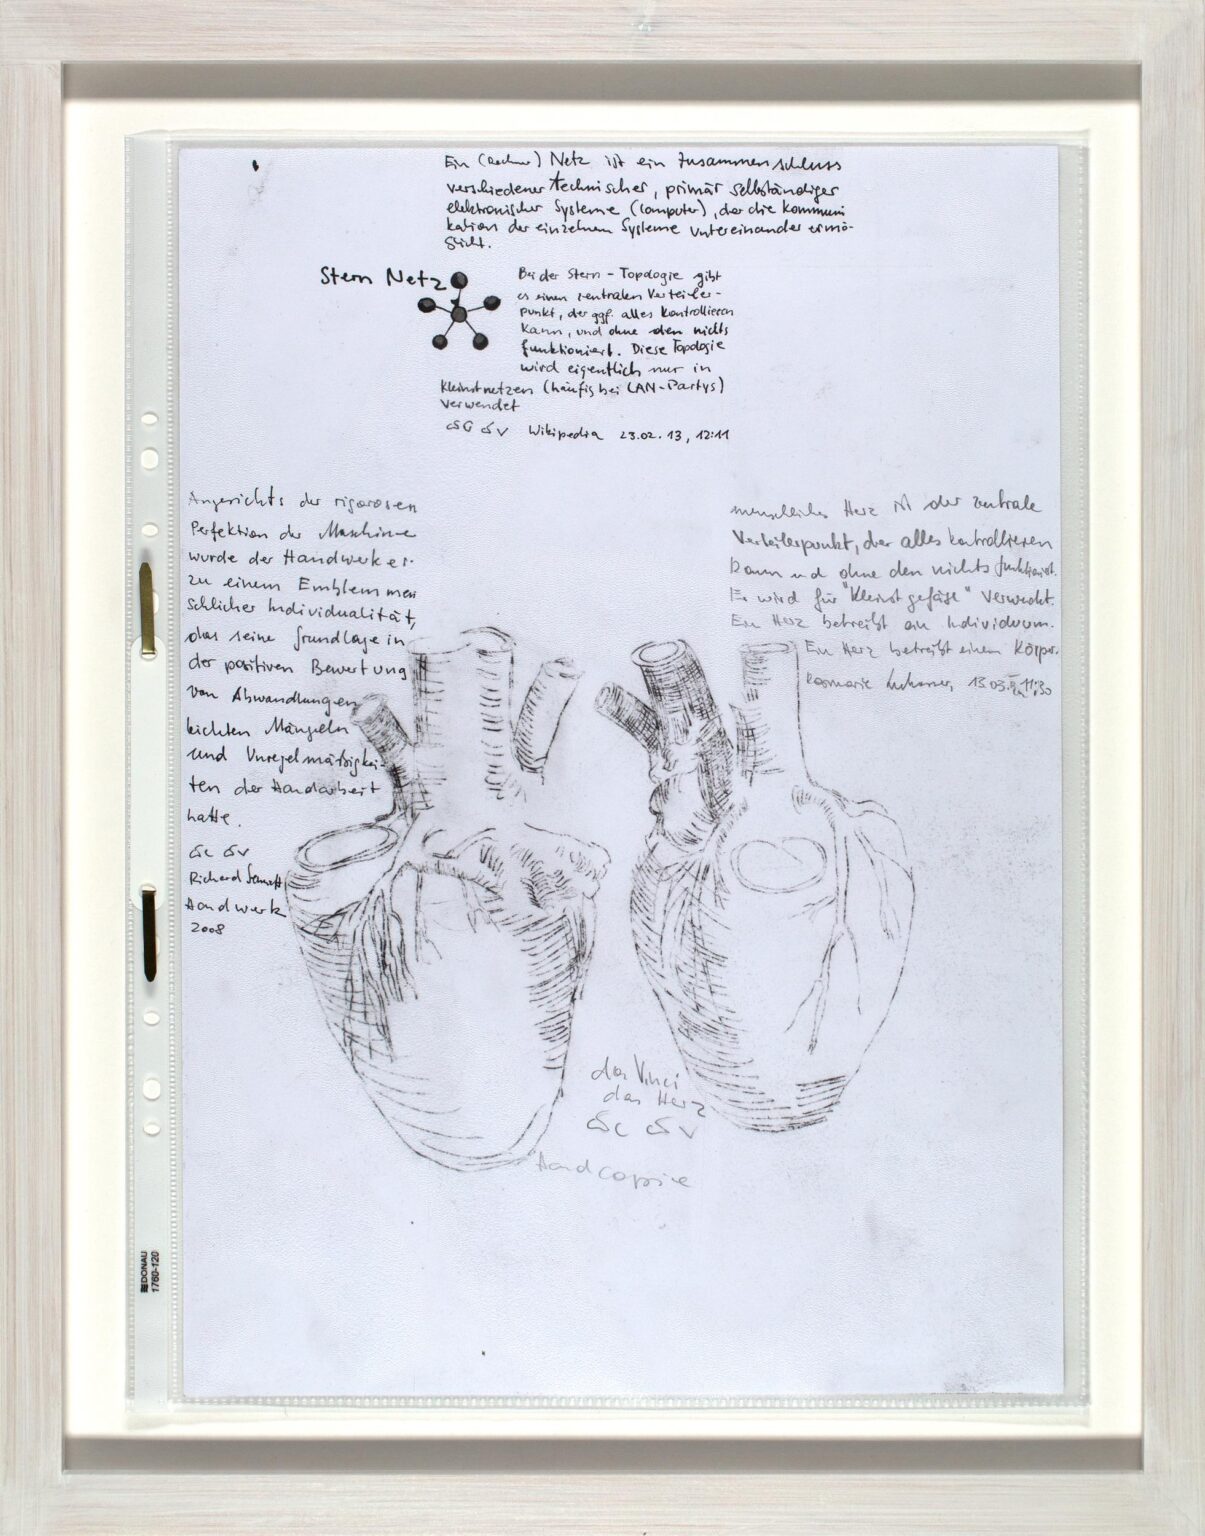 Ein (Rechner) Netz ist ein Zusammenschluss
verschiedener technischer, primär selbständiger
elektronischer Systeme (Computer), der die Kommuni
kation der einzelnen Systeme untereinander ermö-
glicht.
Stern Netz
Bei der Stern-Topologie gibt
es einen zentralen Verteiler-
punkt, der ggf. alles kontrollieren
kann, und ohne den nichts
funktioniert. Diese Topologie
wird eigentlich nur in
Kleinstnetzen (häufig bei LAN-Partys)
verwendet
Wikipedia 23.02.13, 12:11
Angesichts der rigorosen
Perfektion der Maschine
wurde der Handwerker
zu einem Emblem men
schlicher Individualität,
das seine Grundlage in
der positiven Bewertung
von Abwandlungen
leichten Mängeln
und Unregelmäßigkei-
ten der Handarbeit
hatte.
Richard Sennett
Handwerk
2008
menschliches Herz ist der zentrale
Verteilerpunkt, der alles kontrollieren
kann und ohne den nichts funktioniert.
Er wird für "Kleinstgefäße" verwendet.
Ein Herz betreibt ein Individuum.
Ein Herz betreibt einen Körper.
Rosmarie 13.03. 11:30
da Vinci
das Herz
Handcopie
DONAU
1760-120